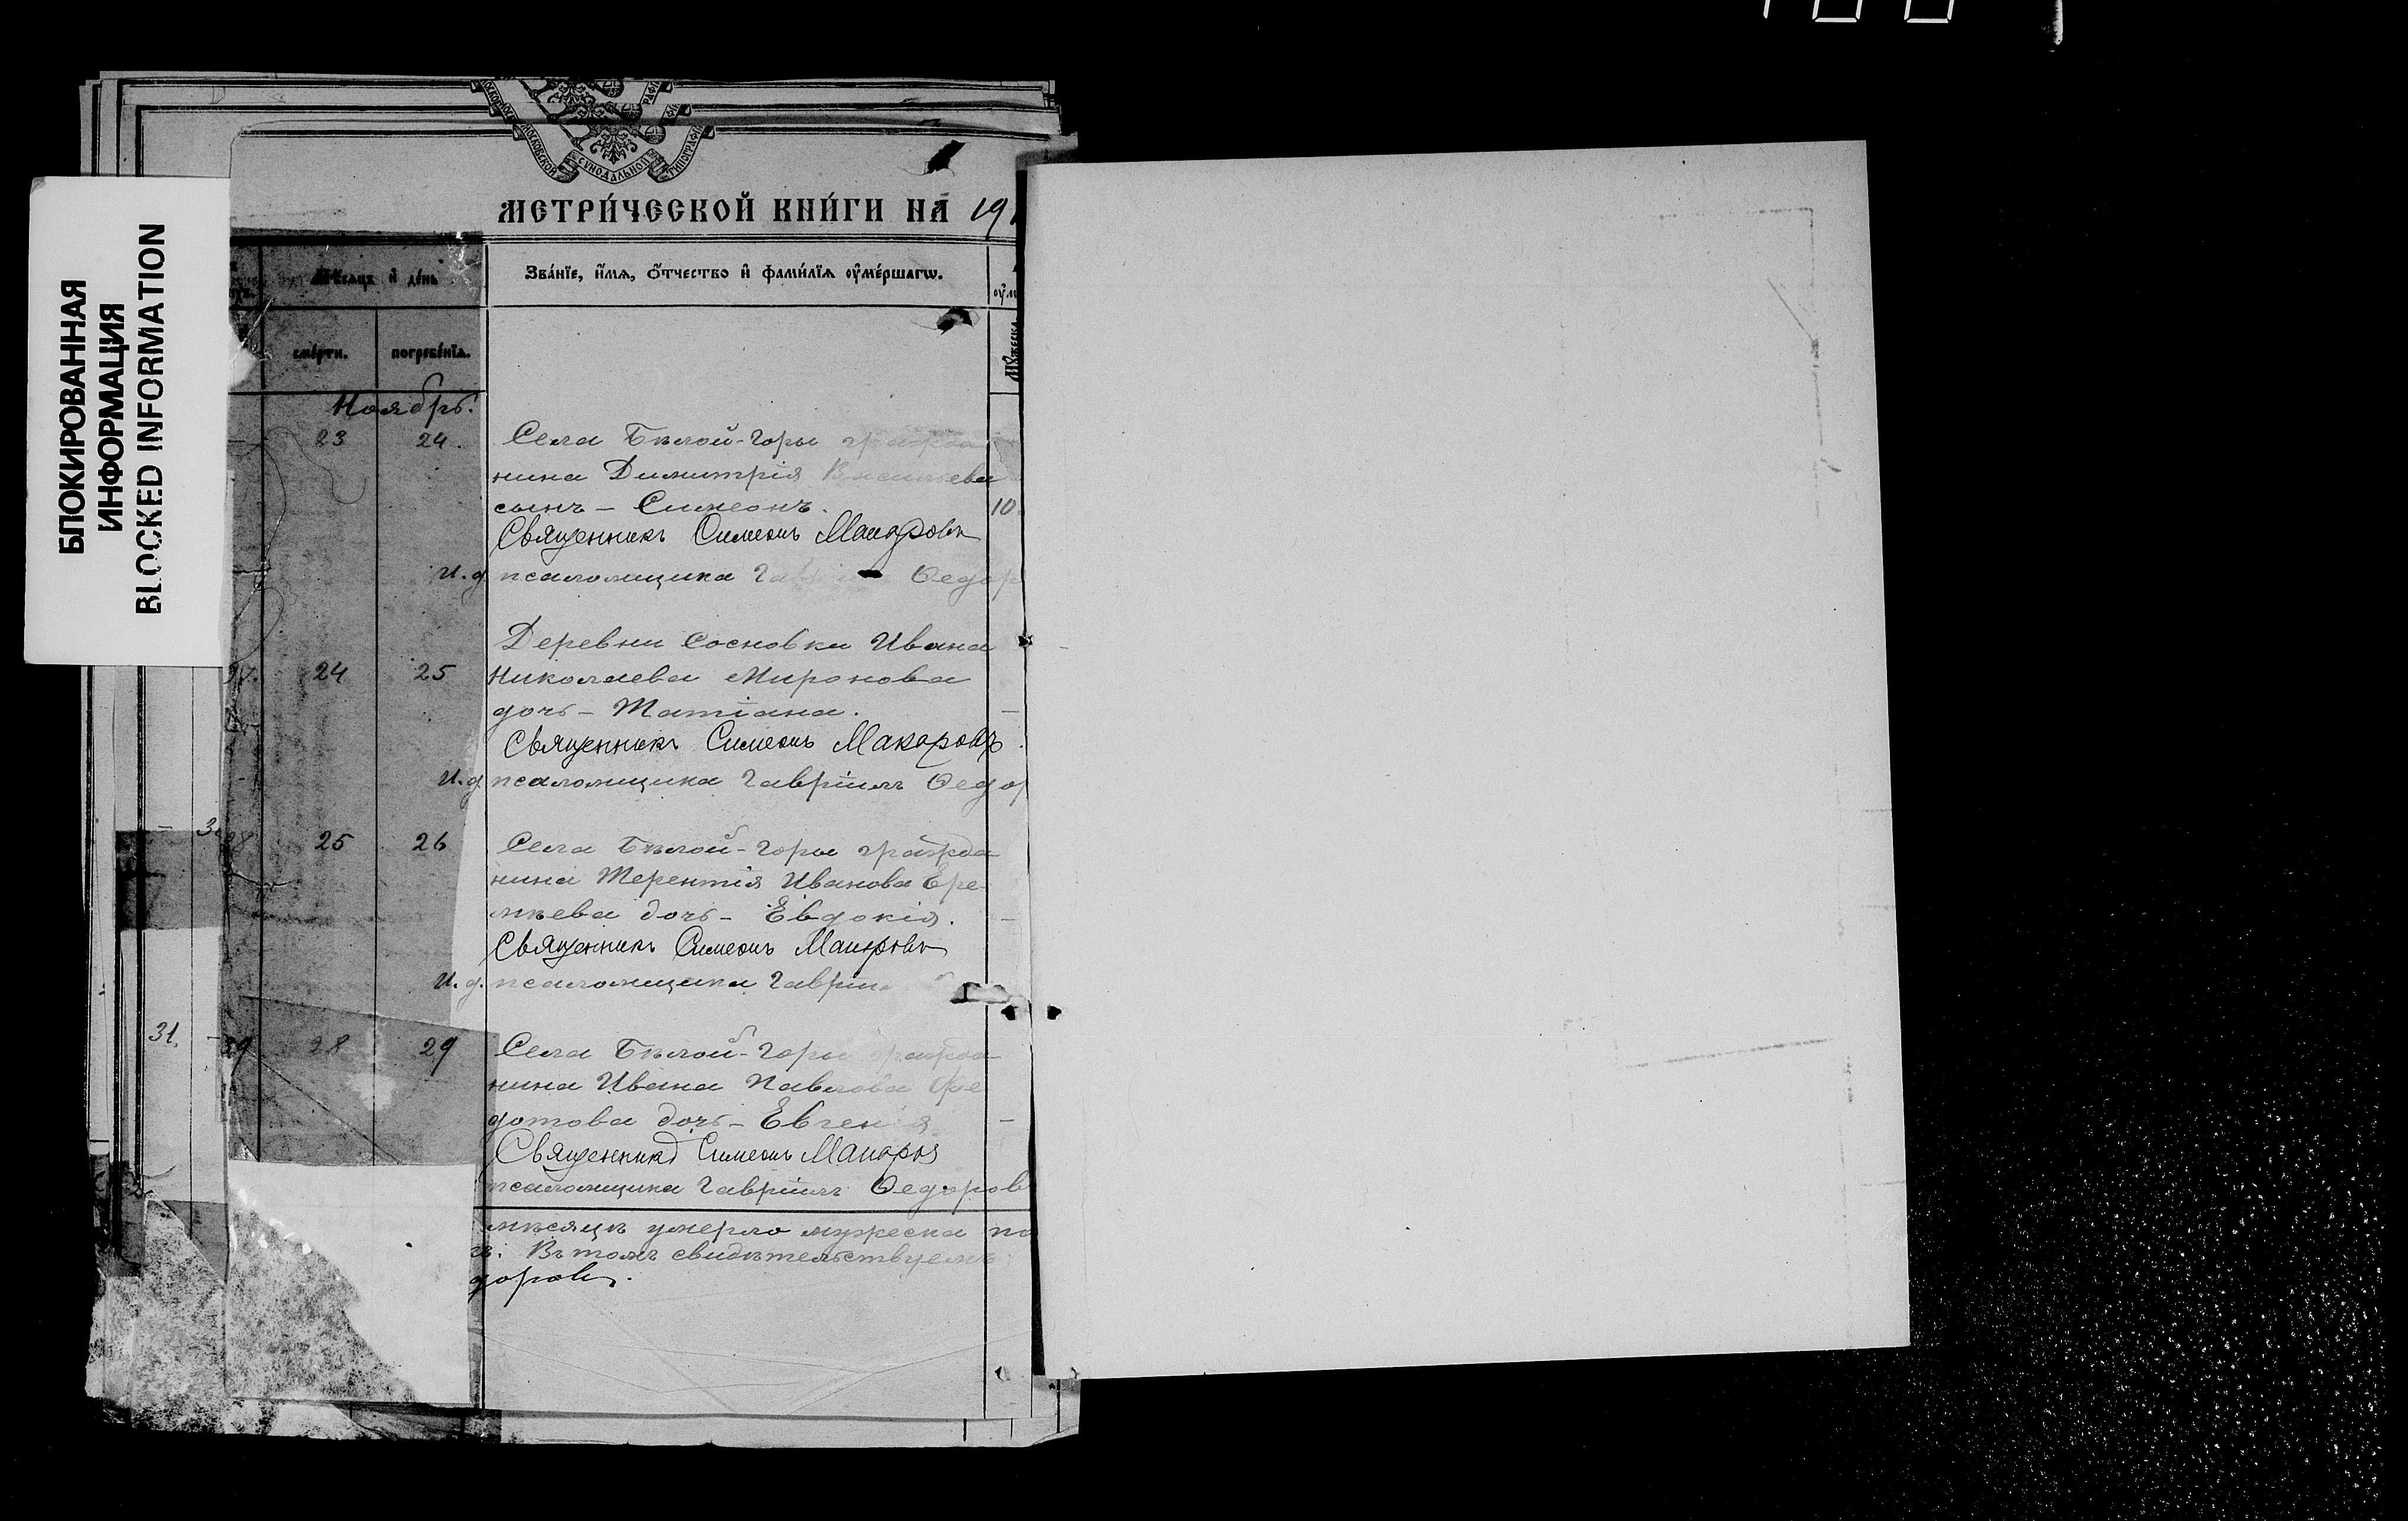 БЛОКИРОВАННАЯ
ИНФОРМАЦИЯ
BLOCKED INFORMATION
МОСКОВСКОЙ СУНОДАЛЬНОЙ ТИПОГРАФІИ
МЕТРИ́ЧЕСКОЙ КНИ́ГИ НА 19
Мѣсяцъ и де́нь
Зва́нїе, и҆́мѧ, ѻ҆́тчество и҆ фами́лїѧ ᲂу҆ме́ршагѡ.
сме́рти.
погребе́нїѧ.
Ноябрь.
23 24. Села Бѣлой-Горы гражда
нина Димитрія Васильева
сынъ - Симеонъ. 10.
Священникъ Симеонъ Макаровъ
И. д. псаломщика Федор
Деревни Сосновки Ивана
24 25 Николаева Миронова
дочь - Татіана. -
Священникъ Симеонъ Макаровъ
И. д. псаломщика Гавріилъ Федор
25 26 Села Бѣлой-Горы гражда
нина Терентія Иванова Ере-
мѣева дочь - Евдокія. -
Священникъ Симеонъ Макаровъ
И. д. псаломщика Гаврі
31. 28 29 Села Бѣлой-Горы гражда
нина Ивана Павлова Фе
дотова дочь - Евгенія. -
Священникъ Симеонъ Макаровъ
псаломщика Гавріилъ Федоров
мѣсяцѣ умерло мужеска по
Въ томъ свидѣтельствуемъ:
доровъ.